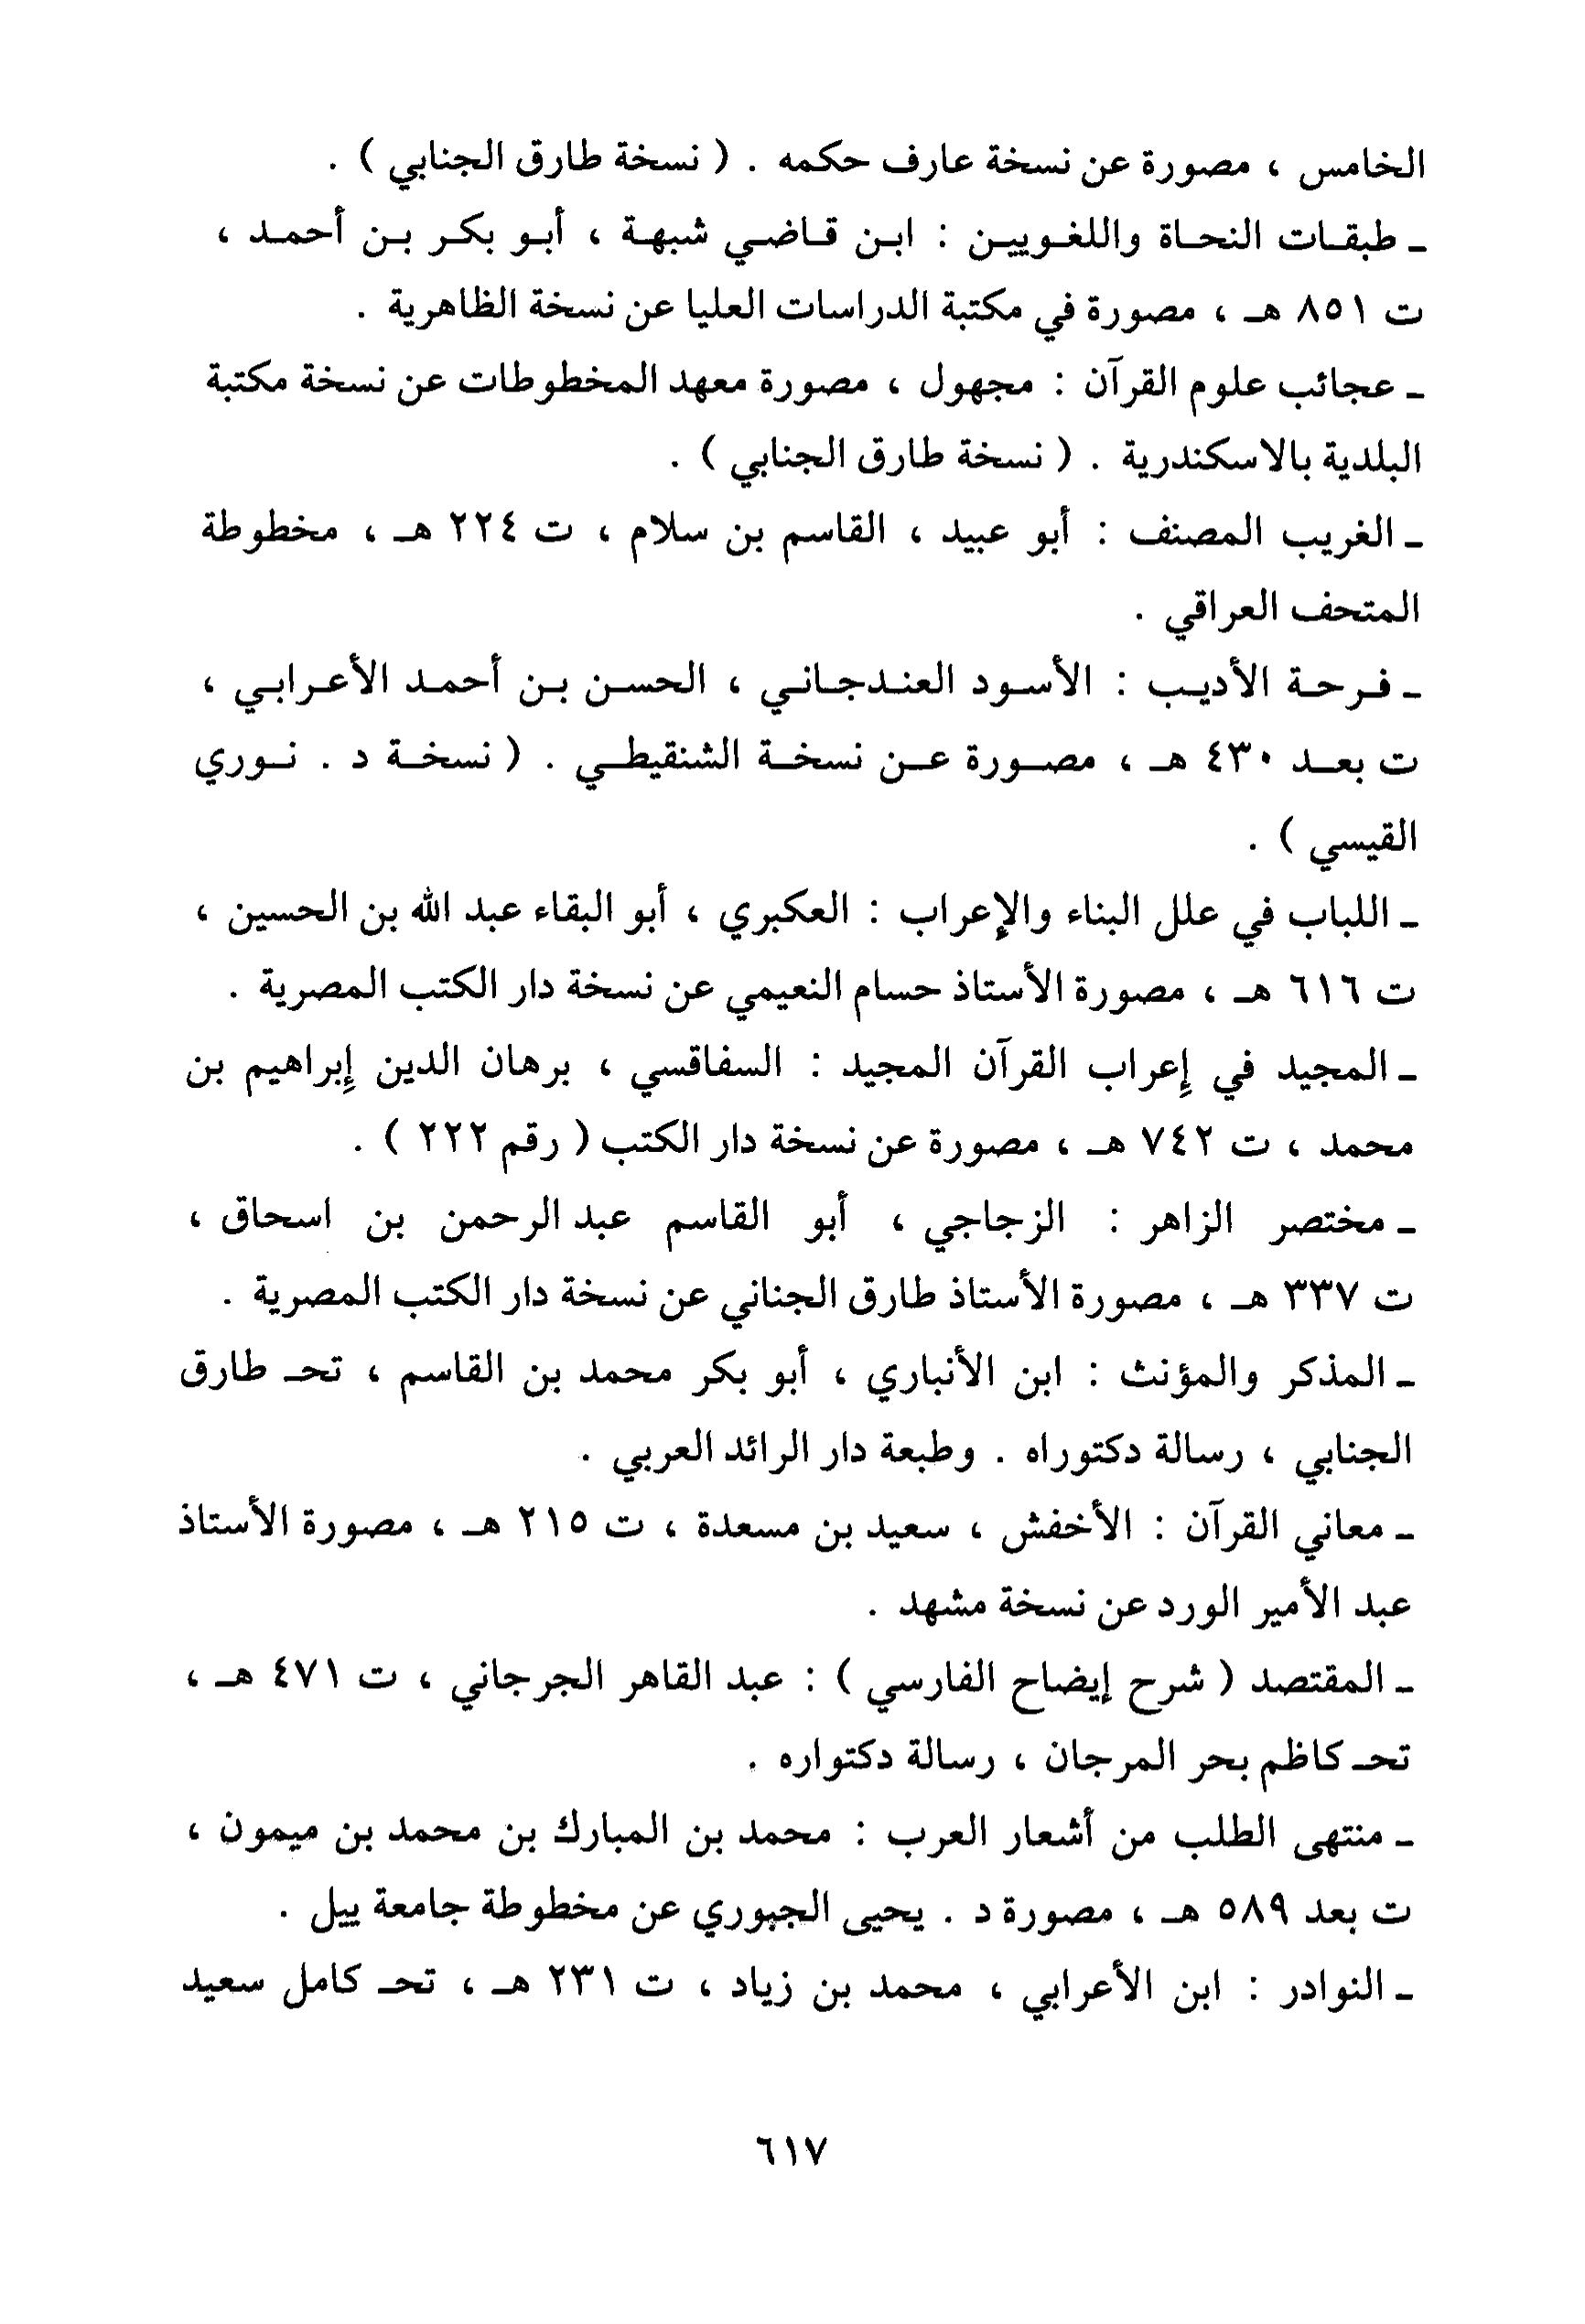 الخامس ، مصورة عن نسخة عارف حكمه . ( نسخة طارق الجنابي ) .
ـ طبقات النحاة واللغويين : ابن قاضي شبهة ، أبو بكر بن أحمد ،
ت ٨٥١ هـ ، مصورة في مكتبة الدراسات العليا عن نسخة الظاهرية .
ـ عجائب علوم القرآن : مجهول ، مصورة معهد المخطوطات عن نسخة مكتبة
البلدية بالاسكندرية . ( نسخة طارق الجنابي ) .
ـ الغريب المصنف : أبو عبيد ، القاسم بن سلام ، ت ٢٢٤ هـ ، مخطوطة
المتحف العراقي .
ـ فرحة الأديب : الأسود العندجاني ، الحسن بن أحمد الأعرابي ،
ت بعد ٤٣٠ هـ ، مصورة عن نسخة الشنقيطي . ( نسخة د . نوري
القيسي ) .
ـ اللباب في علل البناء والإعراب : العكبري ، أبو البقاء عبد الله بن الحسين ،
ت ٦١٦ هـ ، مصورة الأستاذ حسام النعيمي عن نسخة دار الكتب المصرية .
ـ المجيد في إعراب القرآن المجيد : السفاقسي ، برهان الدين إبراهيم بن
محمد ، ت ٧٤٢ هـ ، مصورة عن نسخة دار الكتب ( رقم ٢٢٢ ) .
ـ مختصر الزاهر : الزجاجي ، أبو القاسم عبد الرحمن بن اسحاق ،
ت ٣٣٧ هـ ، مصورة الأستاذ طارق الجناني عن نسخة دار الكتب المصرية .
ـ المذكر والمؤنث : ابن الأنباري ، أبو بكر محمد بن القاسم ، تحـ طارق
الجنابي ، رسالة دكتوراه . وطبعة دار الرائد العربي .
ـ معاني القرآن : الأخفش ، سعيد بن مسعدة ، ت ٢١٥ هـ ، مصورة الأستاذ
عبد الأمير الورد عن نسخة مشهد .
ـ المقتصد ( شرح إيضاح الفارسي ) : عبد القاهر الجرجاني ، ت ٤٧١ هـ ،
تحـ كاظم بحر المرجان ، رسالة دكتواره .
ـ منتهى الطلب من أشعار العرب : محمد بن المبارك بن محمد بن ميمون ،
ت بعد ٥٨٩ هـ ، مصورة د . يحيى الجبوري عن مخطوطة جامعة ييل .
ـ النوادر : ابن الأعرابي ، محمد بن زياد ، ت ٢٣١ هـ ، تحـ كامل سعيد
٦١٧